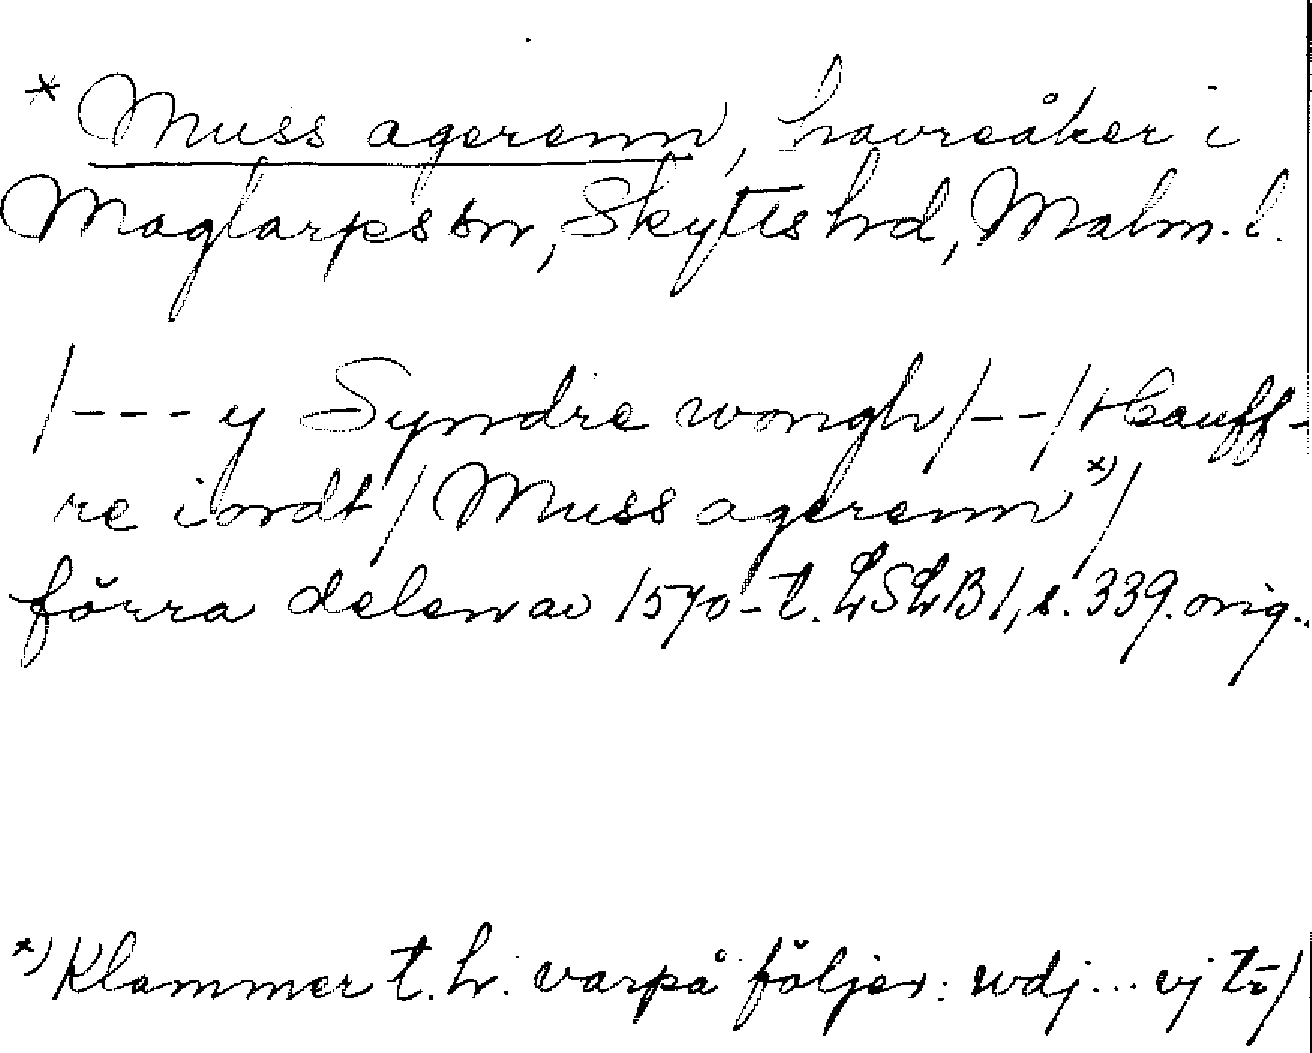 * Muss agerenn, havreåker i
Maglarps sn, Skytts hd, Malm. l.
/--- y Syndre wongh/--/Hauff-
re iordt/Muss agerenn*)/
förra delen av 1570-t. LSLB 1, s. 339. orig..
*) Klammer t.h. varpå följer: wdj... vj tō/